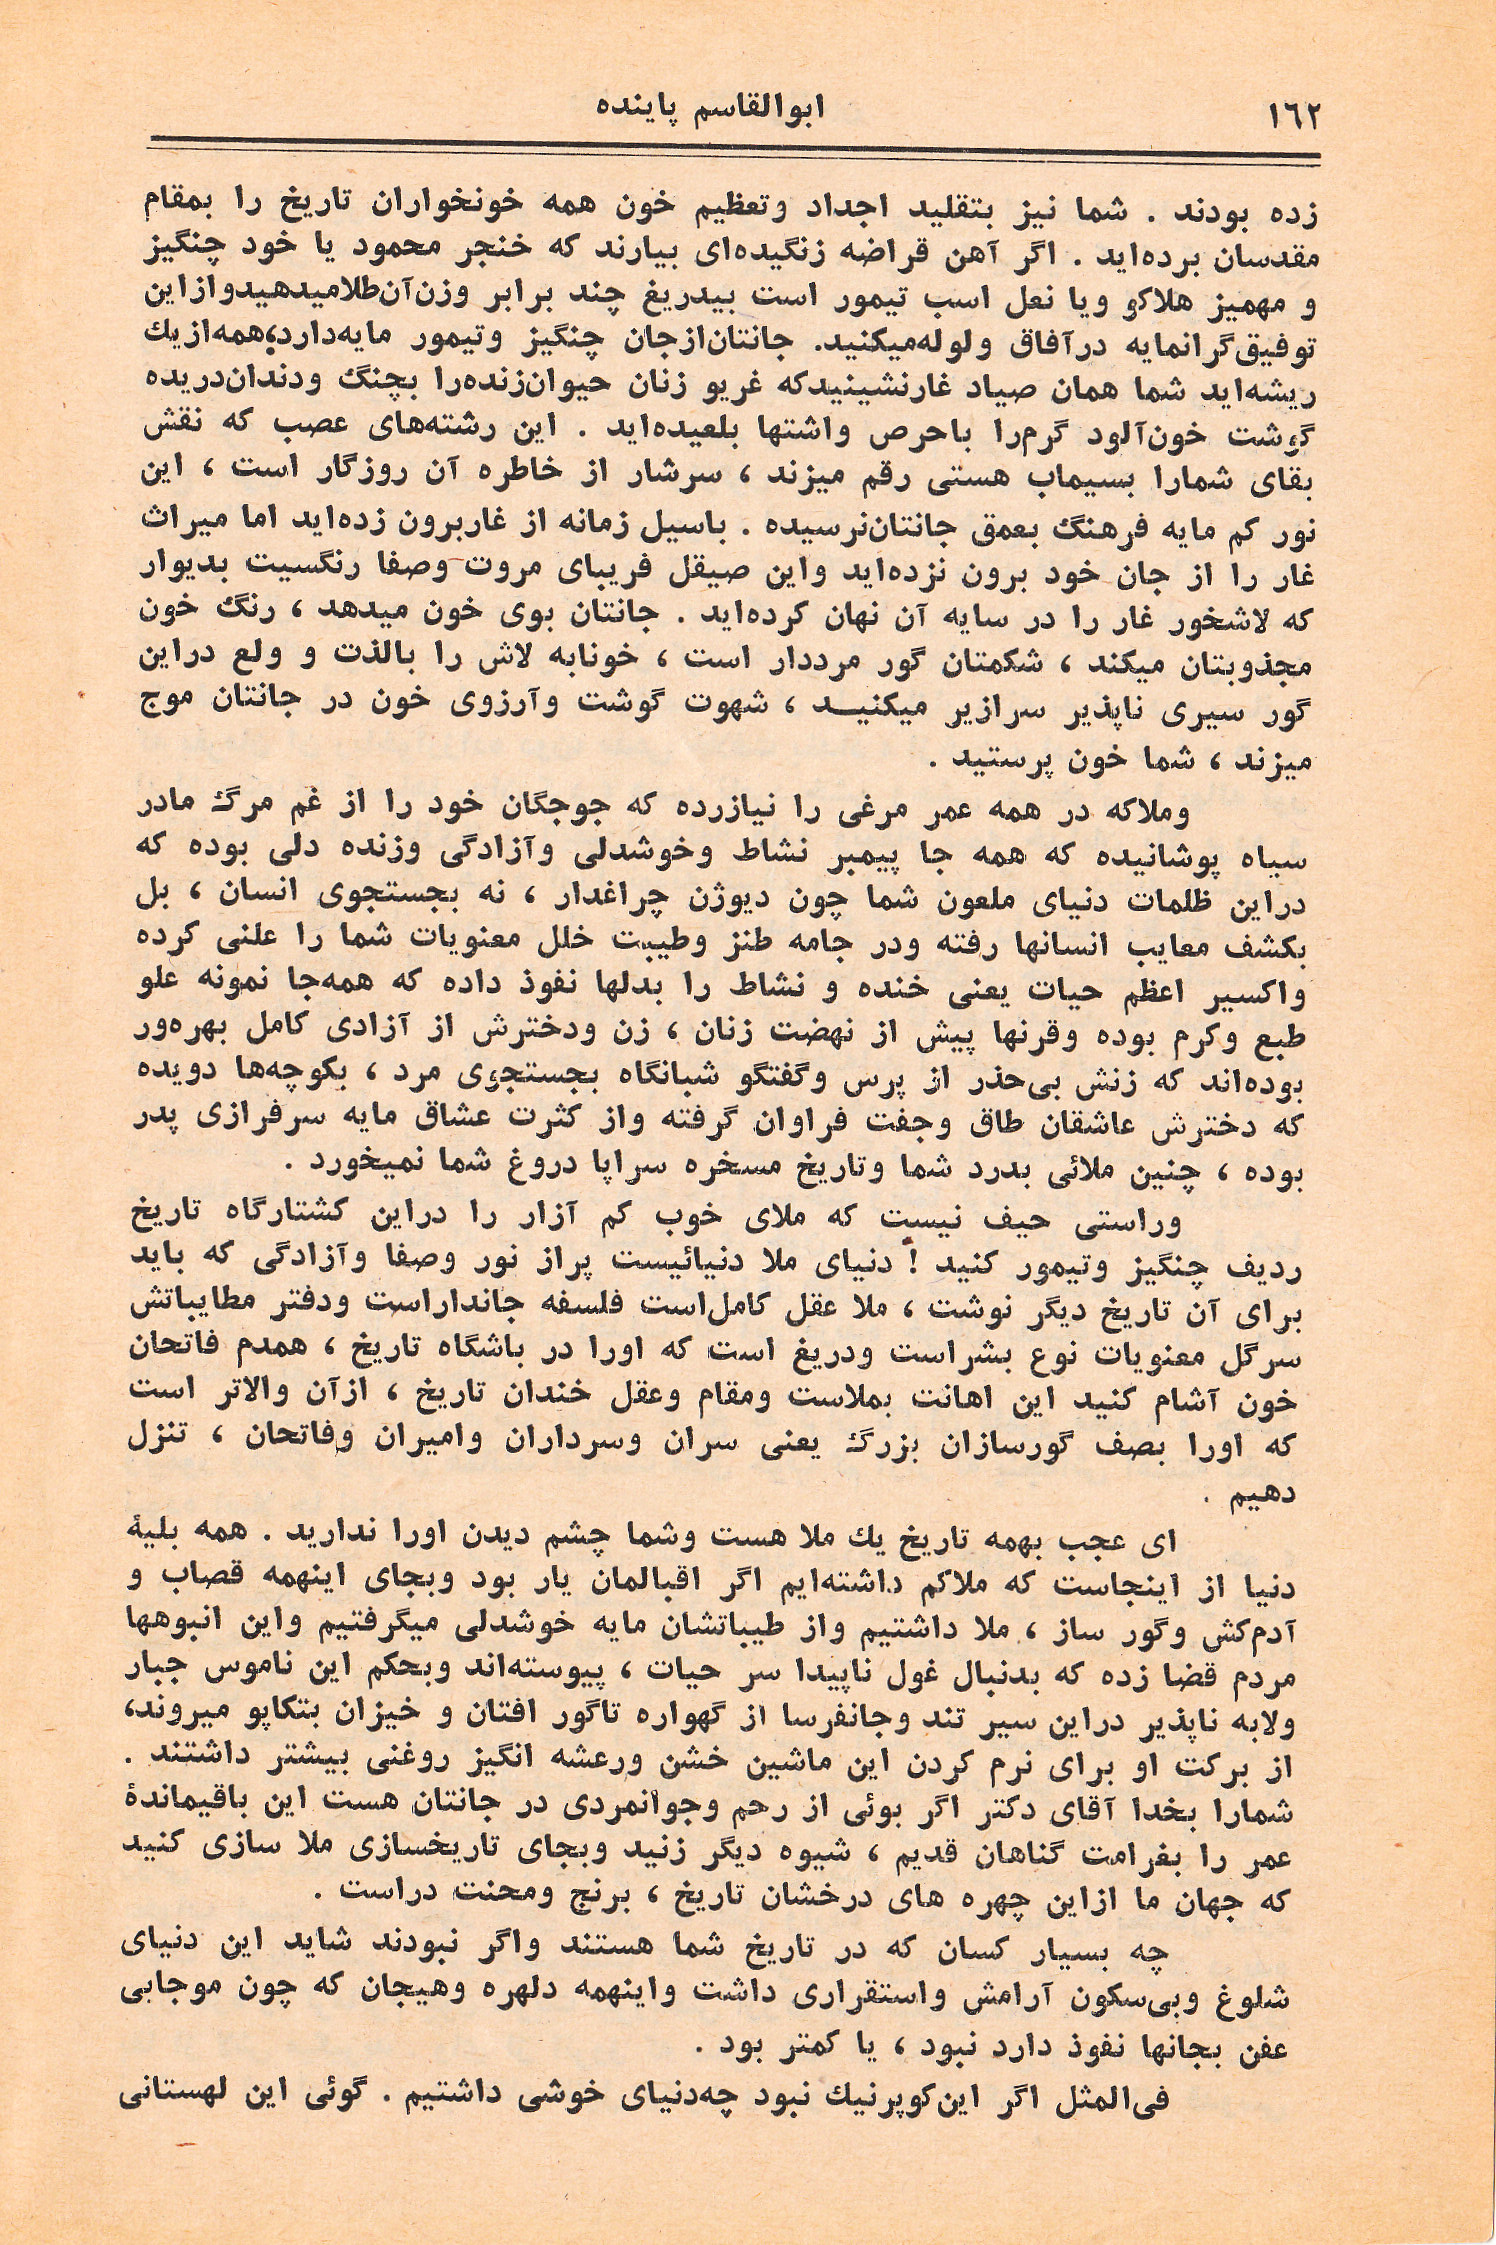 ۱۶۲
ابوالقاسم پاینده
زده بودند . شما نیز بتقلید اجداد وتعظیم خون همه خونخواران تاریخ را بمقام
مقدسان برده‌اید . اگر آهن قراضه زنگیده‌ای بیارند که خنجر محمود یا خود چنگیز
و مهمیز هلاکو ویا نعل اسب تیمور است بیدریغ چند برابر وزن‌آن‌طلامیدهیدوازاین
توفیق‌گرانمایه درآفاق ولوله‌میکنید. جانتان‌ازجان چنگیز وتیمور مایه‌دارد؛همه‌ازیك
ریشه‌اید شما همان صیاد غارنشینیدکه غریو زنان حیوان‌زنده‌را بچنگ ودندان‌دریده
گوشت خون‌آلود گرم‌را باحرص واشتها بلعیده‌اید . این رشته‌های عصب که نقش
بقای شمارا بسیماب هستی رقم میزند ، سرشار از خاطره آن روزگار است ، این
نور کم مایه فرهنگ بعمق جانتان‌نرسیده . باسیل زمانه از غاربرون زده‌اید اما میراث
غار را از جان خود برون نزده‌اید واین صیقل فریبای مروت وصفا رنگسیت بدیوار
که لاشخور غار را در سایه آن نهان کرده‌اید . جانتان بوی خون میدهد ، رنگ خون
مجذوبتان میکند ، شکمتان گور مرددار است ، خونابه لاش را بالذت و ولع دراین
گور سیری ناپذیر سرازیر میکنیـد ، شهوت گوشت وآرزوی خون در جانتان موج
میزند ، شما خون پرستید .
وملاکه در همه عمر مرغی را نیازرده که جوجگان خود را از غم مرگ مادر
سیاه پوشانیده که همه جا پیمبر نشاط وخوشدلی وآزادگی وزنده دلی بوده که
دراین ظلمات دنیای ملعون شما چون دیوژن چراغدار ، نه بجستجوی انسان ، بل
بکشف معایب انسانها رفته ودر جامه طنز وطیبت خلل معنویات شما را علنی کرده
واکسیر اعظم حیات یعنی خنده و نشاط را بدلها نفوذ داده که همه‌جا نمونه علو
طبع وکرم بوده وقرنها پیش از نهضت زنان ، زن ودخترش از آزادی کامل بهره‌ور
بوده‌اند که زنش بی‌حذر از پرس وگفتگو شبانگاه بجستجوی مرد ، بکوچه‌ها دویده
که دخترش عاشقان طاق وجفت فراوان گرفته واز کثرت عشاق مایه سرفرازی پدر
بوده ، چنین ملائی بدرد شما وتاریخ مسخره سراپا دروغ شما نمیخورد .
وراستی حیف نیست که ملای خوب کم آزار را دراین کشتارگاه تاریخ
ردیف چنگیز وتیمور کنید ! دنیای ملا دنیائیست پراز نور وصفا وآزادگی که باید
برای آن تاریخ دیگر نوشت ، ملا عقل کامل‌است فلسفه جانداراست ودفتر مطایباتش
سرگل معنویات نوع بشراست ودریغ است که اورا در باشگاه تاریخ ، همدم فاتحان
خون آشام کنید این اهانت بملاست ومقام وعقل خندان تاریخ ، ازآن والاتر است
که اورا بصف گورسازان بزرگ یعنی سران وسرداران وامیران وفاتحان ، تنزل
دهیم .
ای عجب بهمه تاریخ یك ملا هست وشما چشم دیدن اورا ندارید . همه بلیهٔ
دنیا از اینجاست که ملاکم داشته‌ایم اگر اقبالمان یار بود وبجای اینهمه قصاب و
آدم‌کش وگور ساز ، ملا داشتیم واز طیباتشان مایه خوشدلی میگرفتیم واین انبوهها
مردم قضا زده که بدنبال غول ناپیدا سر حیات ، پیوسته‌اند وبحکم این ناموس جبار
ولابه ناپذیر دراین سیر تند وجانفرسا از گهواره تاگور افتان و خیزان بتکاپو میروند،
از برکت او برای نرم کردن این ماشین خشن ورعشه انگیز روغنی بیشتر داشتند .
شمارا بخدا آقای دکتر اگر بوئی از رحم وجوانمردی در جانتان هست این باقیماندهٔ
عمر را بغرامت گناهان قدیم ، شیوه دیگر زنید وبجای تاریخسازی ملا سازی کنید
که جهان ما ازاین چهره های درخشان تاریخ ، برنج ومحنت دراست .
چه بسیار کسان که در تاریخ شما هستند واگر نبودند شاید این دنیای
شلوغ وبی‌سکون آرامش واستقراری داشت واینهمه دلهره وهیجان که چون موجابی
عفن بجانها نفوذ دارد نبود ، یا کمتر بود .
فی‌المثل اگر این‌کوپرنیك نبود چه‌دنیای خوشی داشتیم . گوئی این لهستانی